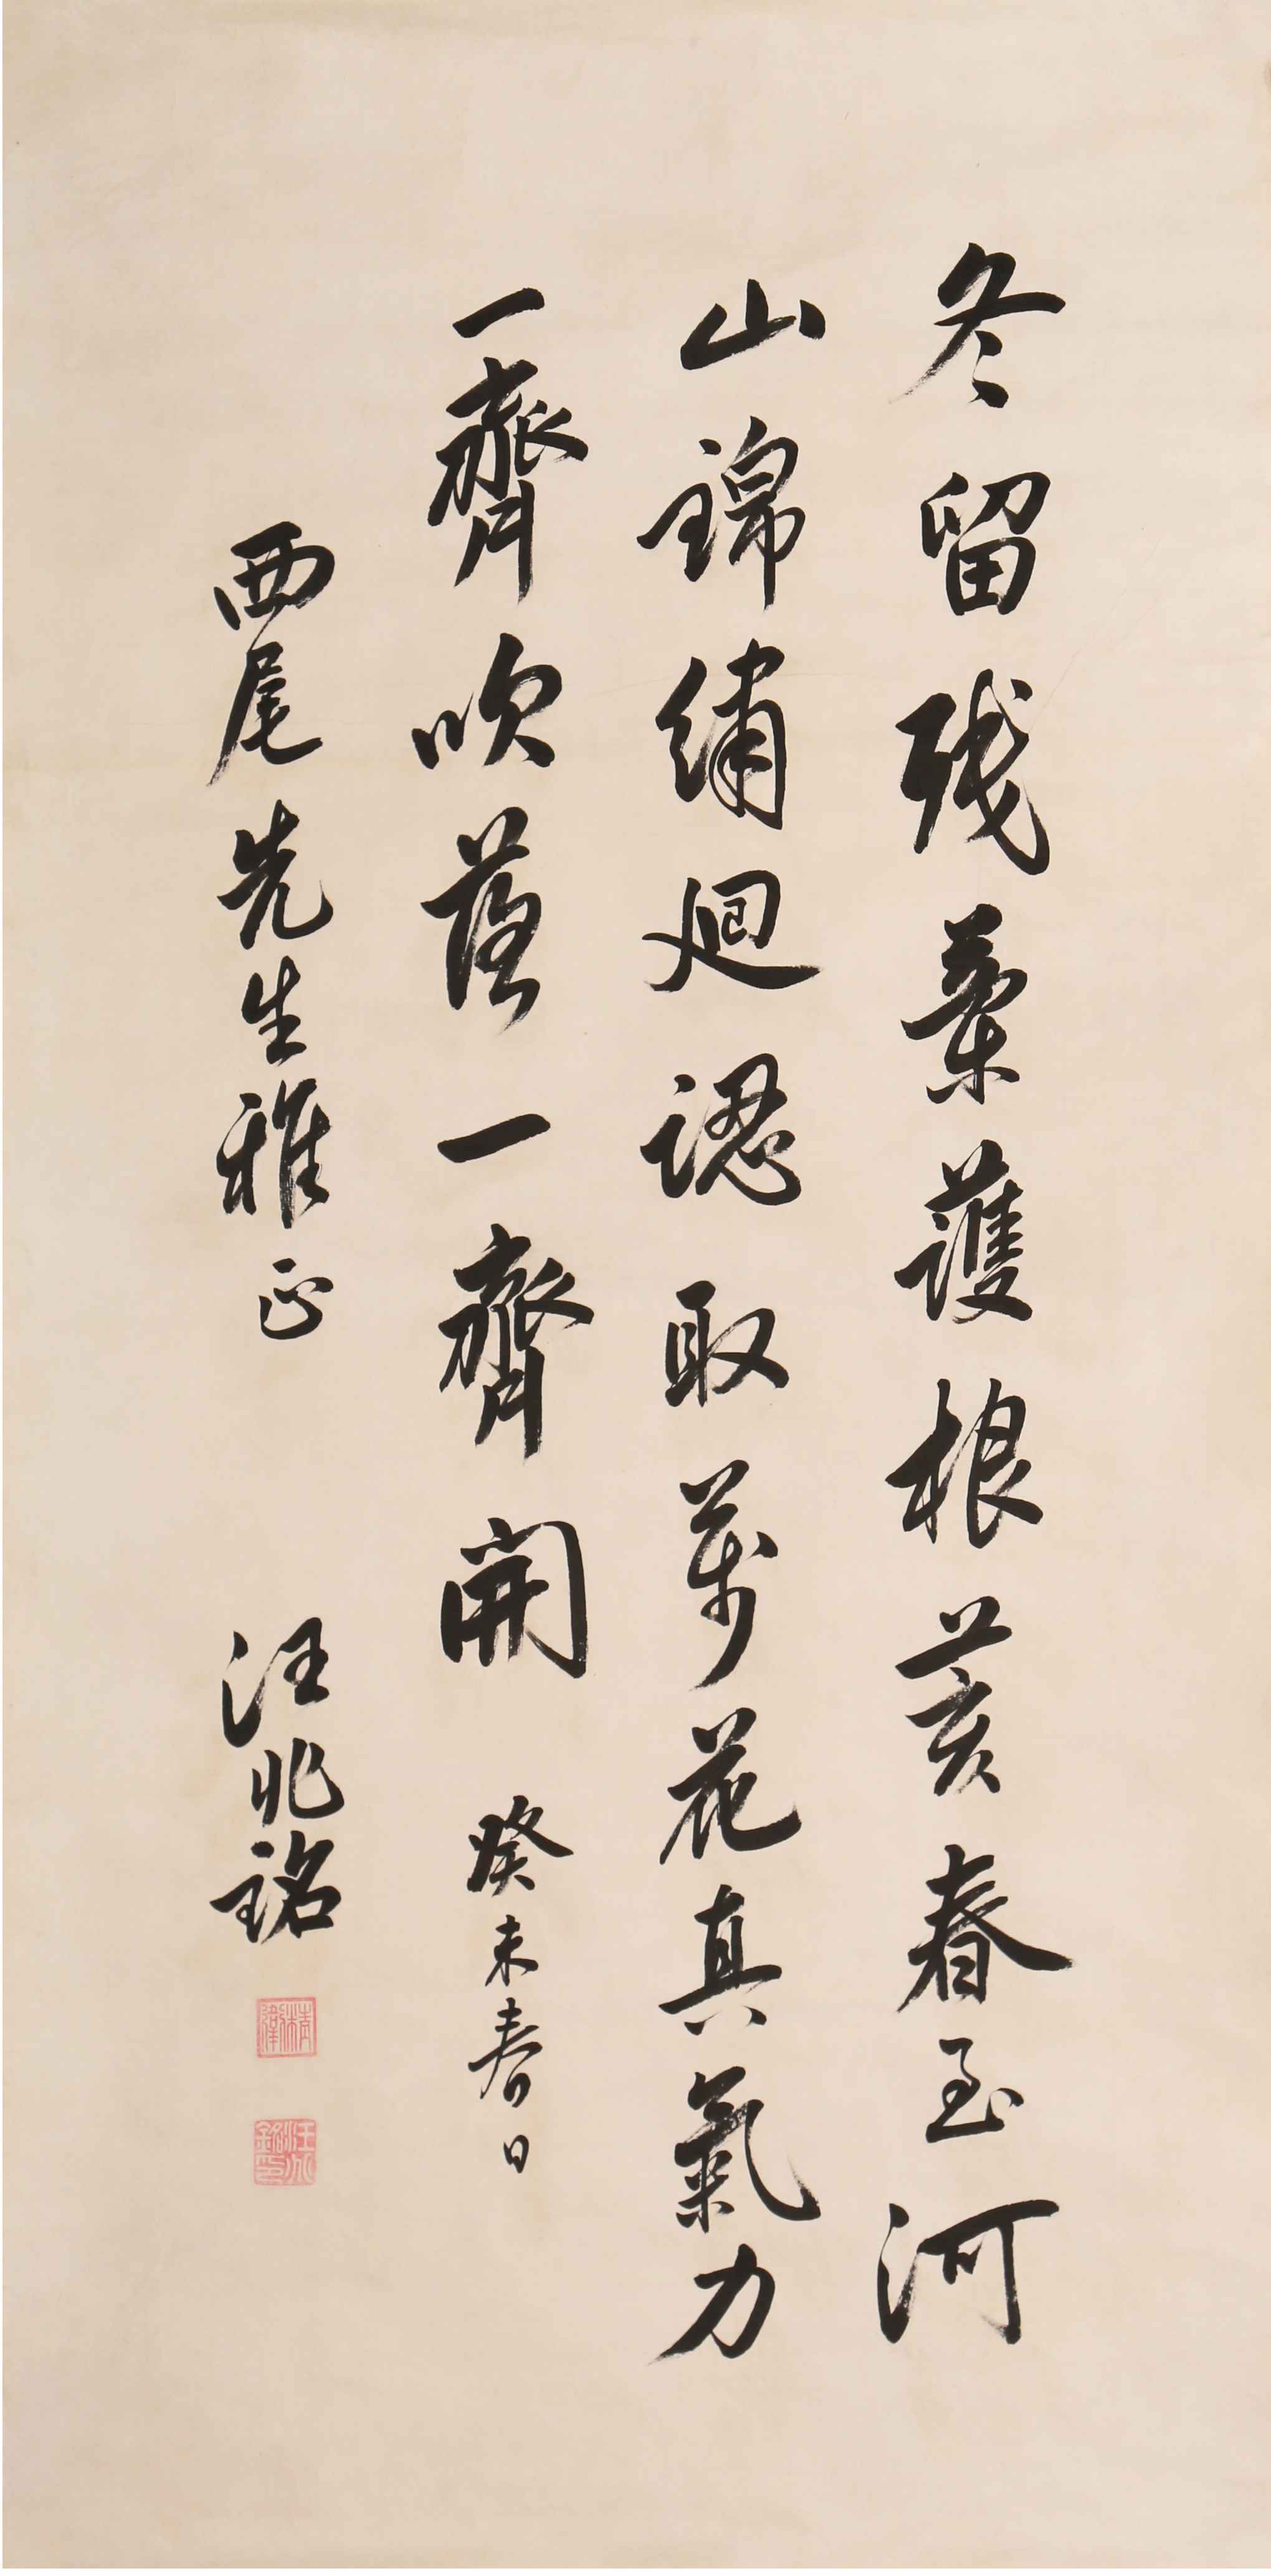 冬留殘葉護根荄春至河
山錦繡迴認取萬花真氣力
一齊吹落一齊開 癸未春日
西尾先生雅正 汪兆銘
精衛
汪兆銘印